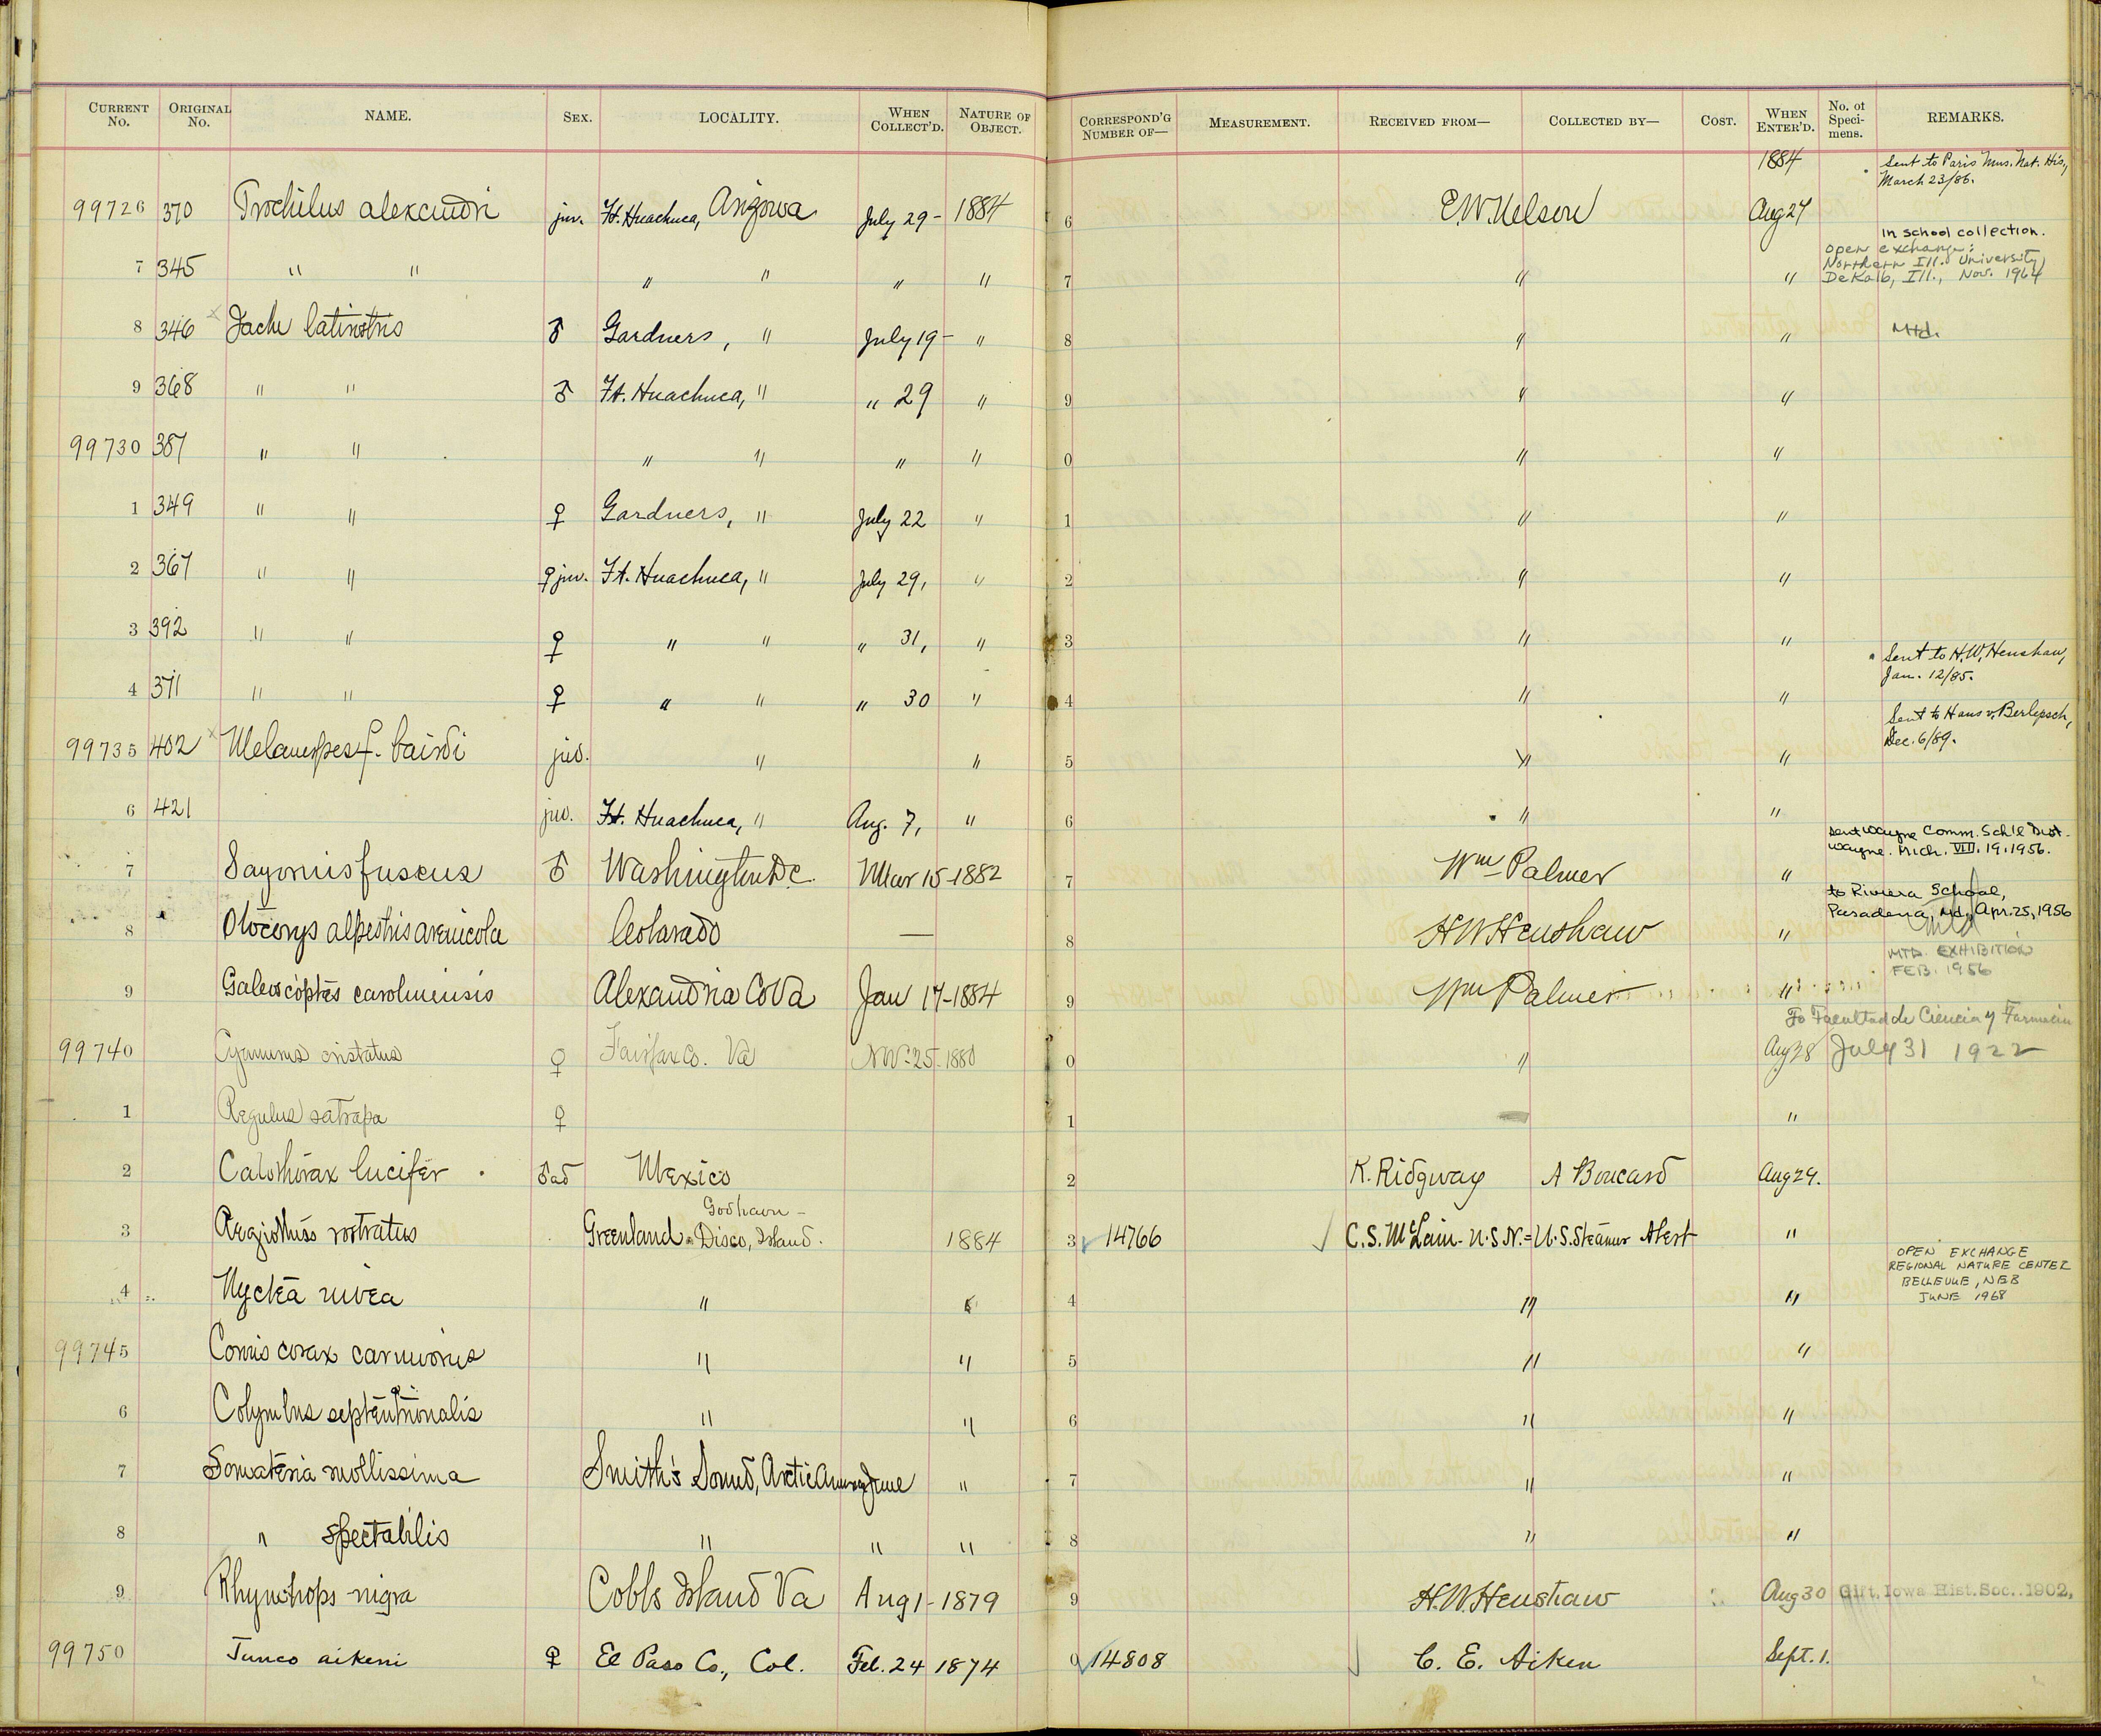 CURRENT No. ORIGINAL No. NAME. SEX. LOCALITY. WHEN COLLECT'D. NATURE OF OBJECT. CORRESPOND'G NUMBER OF— MEASUREMENT. RECEIVED FROM— COLLECTED BY— COST. WHEN ENTER'D. No. of Specimens. REMARKS.
1884 Sent to Paris Mus. Nat. His.,
March 23/86.
99726 370 Trochilus alexandri juv. Ft. Huachuca, Arizona July 29- 1884 6 E.W. Nelson Aug 27
In school collection.
open exchange:
Northern Ill. University
DeKalb, Ill., Nov. 1964
7 345 " " " " " " 7 " "
8 346 x Jache latirostris ♂ Gardners, " July 19- " 8 " " Mtd.
9 368 " " ♂ Ft. Huachuca, " " 29 " 9 " "
99730 387 " " " " " " 0 " "
1 349 " " ♀ Gardners, " July 22 " 1 " "
2 367 " " ♀ juv. Ft. Huachuca, " July 29, " 2 " "
3 392 " " ♀ " " " 31, " 3 " "
Sent to H.W. Henshaw,
Jan. 12/85.
4 371 " " ♀ " " " 30 " 4 " "
Sent to Hans v. Berlepsch,
Dec. 6/89.
99735 402 x Melanerpes f. bairdi juv. " " 5 " "
6 421 juv. Ft. Huachuca, " Aug. 7, " 6 " "
sent Wayne Comm. Sch'l Dist.
Wayne. Mich. VII. 19. 1956.
7 Sayornis fuscus ♂ Washington D.C. Mar 15-1882 7 Wm Palmer "
to Riviera School,
Pasadena, Md., Apr. 25, 1956
8 Otocorys alpestris arenicola Colorado — 8 H W Henshaw " Mtd
MTD. EXHIBITION
FEB. 1956
9 Galeoscoptes carolinensis Alexandria Co Va Jan 17-1884 9 Wm Palmer "
To Facultad de Ciencia y Farmacia
99740 Cyanurus cristatus ♀ Fairfax Co. Va Nov. 25. 1880 0 " Aug 28 July 31 1922
1 Regulus satrapa ♀ 1 "
2 Calothorax lucifer ♂ ad Mexico 2 R. Ridgway A Boucard Aug 29.
Godhavn -
3 Aegiothus rostratus Greenland - Disco, Island. 1884 3 14766 C.S. McLain - U.S.N. = U.S. Steamer Alert "
OPEN EXCHANGE
REGIONAL NATURE CENTER
BELLEVUE, NEB
JUNE 1968
4 Nyctea nivea " " 4 " "
99745 Corvus corax carnivorus " " 5 " "
6 Colymbus septentrionalis " " 6 " "
7 Somateria mollissima Smith's Sound, Arctic America June " 7 " "
8 " spectabilis " " " 8 " "
9 Rhynchops nigra Cobbs Island Va Aug 1-1879 9 H.W. Henshaw Aug 30 Gift. Iowa Hist. Soc. 1902.
99750 Junco aikeni ♀ El Paso Co., Col. Feb. 24 1874 0 14808 C. E. Aiken Sept. 1.